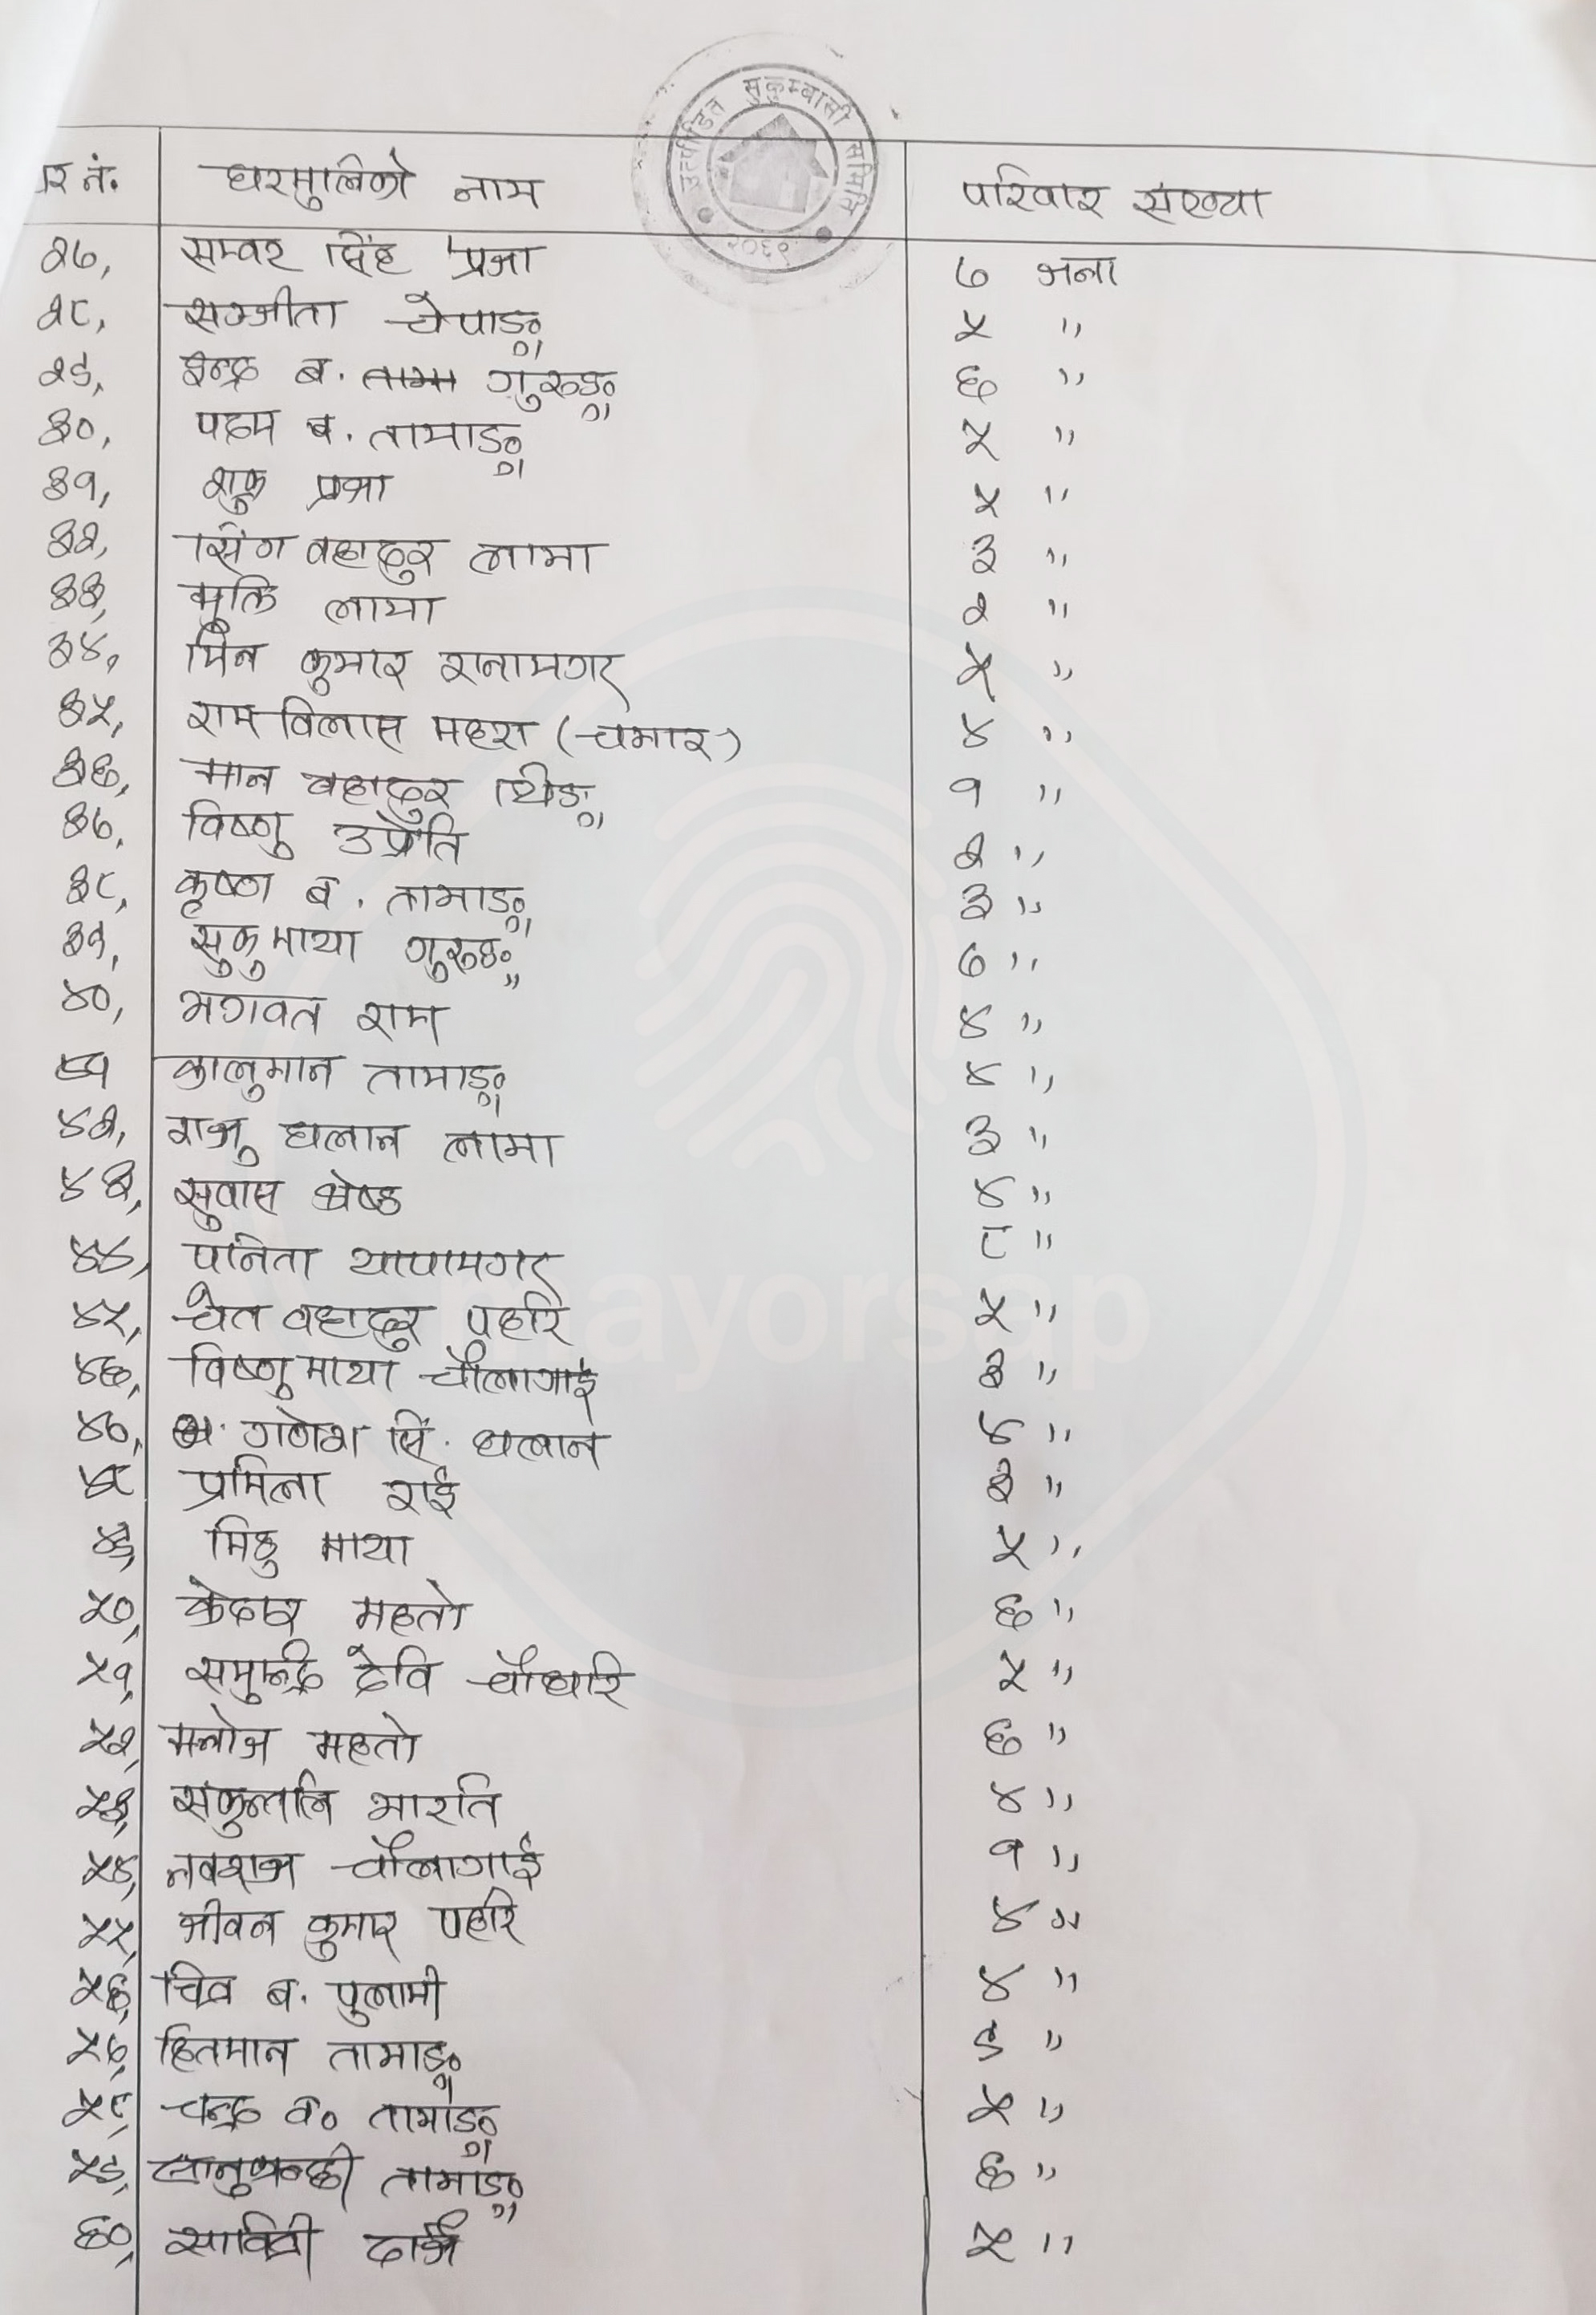 उत्पीडित सुकुम्बासी समिति
२०६९
घर नं. घरमुलिको नाम परिवार संख्या
२७, सम्वर सिंह प्रजा ७ जना
२८, सञ्जीता चेपाङ्ग ५ "
२९, ईन्द्र ब. तामा गुरुङ्ग ६ "
३०, पदम ब. तामाङ्ग ५ "
३१, शुक्र प्रजा ५ "
३२, सिंग वहादुर लामा ३ "
३३, मुक्ति लामा २ "
३४, मिन कुमार रानामगर ५ "
३५, राम विलास महरा (चमार) ४ "
३६, मान वहादुर थिङ्ग १ "
३७, विष्णु उप्रेति २ "
३८, कृष्ण ब. तामाङ्ग ३ "
३९, सुकुमाया गुरुङ्ग ७ "
४०, भगवत राम ४ "
४१ कालुमान तामाङ्ग ४ "
४२, राजु घलान लामा ३ "
४३, सुवास श्रेष्ठ ४ "
४४, पनिता थापामगर ८ "
४५, चेत वहादुर पहरि ५ "
४६, विष्णु माया चौलागाई ३ "
४७, गणेश सिं. घलान ४ "
४८ प्रमिला राई ३ "
४९, मिठु माया ५ "
५०, केदार महतो ६ "
५१, समुन्द्रि देवि चौधरि ५ "
५२, मनोज महतो ६ "
५३, संकुन्तलि भारति ४ "
५४, नवराज चौलागाई १ "
५५, जीवन कुमार पहरि ४ "
५६, चित्र ब. पुलामी ४ "
५७, हितमान तामाङ्ग ९ "
५८, चन्द्र व० तामाङ्ग ५ "
५९, सानुकान्छी तामाङ्ग ६ "
६०, सावित्री दर्जि ५ "
mayorsap